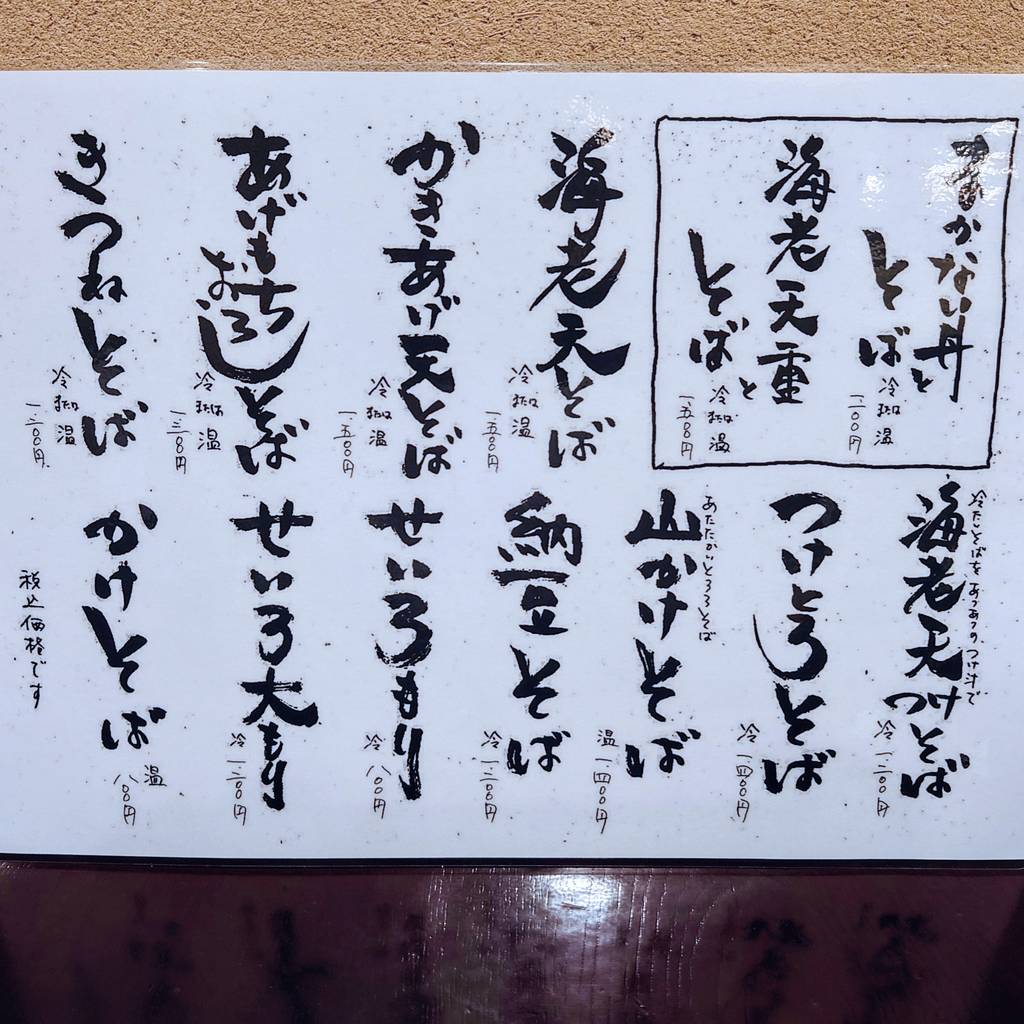 まかない丼と
そば
冷 または 温
一二〇〇円
海老天重と
そば
冷 または 温
一五〇〇円
海老天そば
冷 または 温
一五〇〇円
かきあげ天そば
冷 または 温
一五〇〇円
あげもち
おろしそば
冷 または 温
一三〇〇円
きつねそば
冷 または 温
一二〇〇円
冷たいそばをあつあつのつけ汁で
海老天つけそば
冷 一六〇〇円
つけとろろそば
冷 一四〇〇円
あたたかいとろろそば
山かけそば
温 一四〇〇円
納豆そば
冷 一二〇〇円
せいろもり
冷 八〇〇円
せいろ大もり
冷 一二〇〇円
かけそば
温 八〇〇円
税込価格です